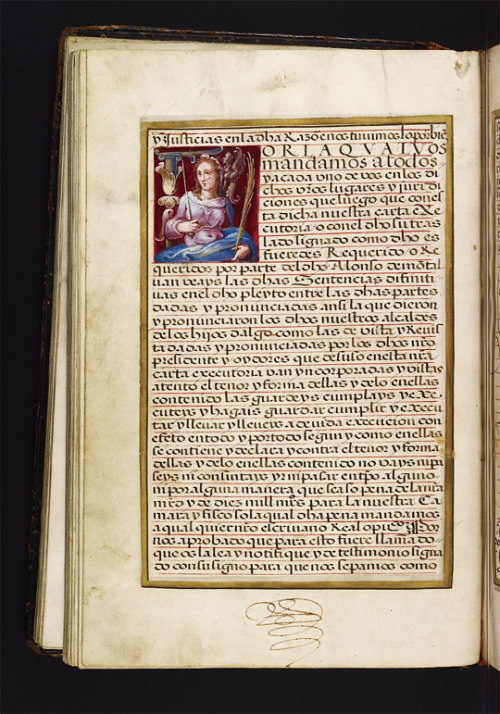 y Justicias en la dha Razō e nos tuuimos lo por biē
OR LA QVAL VOS
mandamos a todos
y a cada vno de vos en los di
chos vrōs lugares y juridi
ciones que luego que con es
ta dicha nuestra carta exe
cutoria o con el dho su tras
lado signado como dho es
fueredes Requerido o Re
queridos por parte del dho Alonso de mōtal
uan veays las dhas Sentencias difiniti
uas en el dho pleyto entre las dhas partes
dadas y pronunciadas ansi la que dieron
y pronunciaron los dhos nuestros alcaldes
de los hijos dalgo como las de vista y Reuis
ta dadas y pronunciadas por los dhos nrō
presidente y oydores que de suso en esta nrā
carta executoria van yncorporadas y vistas
atento el tenor y forma dellas y de lo en ellas
contenido las guardeys cumplays y exe
cuteys y hagais guardar cumplir y execu
tar y lleuar y lleueys a deuida execucion con
efeto en todo y por todo segun y como en ellas
se contiene y declara y contra el tenor y forma
dellas y de lo en ellas contenido no vays ni pa
seys ni consintays yr ni pasar en tpō alguno
ni por alguna manera que sea so pena de la nrā
mrd y de dies mill mrs para la nuestra Ca
mara y fisco so la qual dha pena mandamos
a qual quier nrō escriuano Real o pu
nos aprobado que para esto fuere llamado
que os la lea y notifique y de testimonio signa
do con su signo para que nos sepamos como